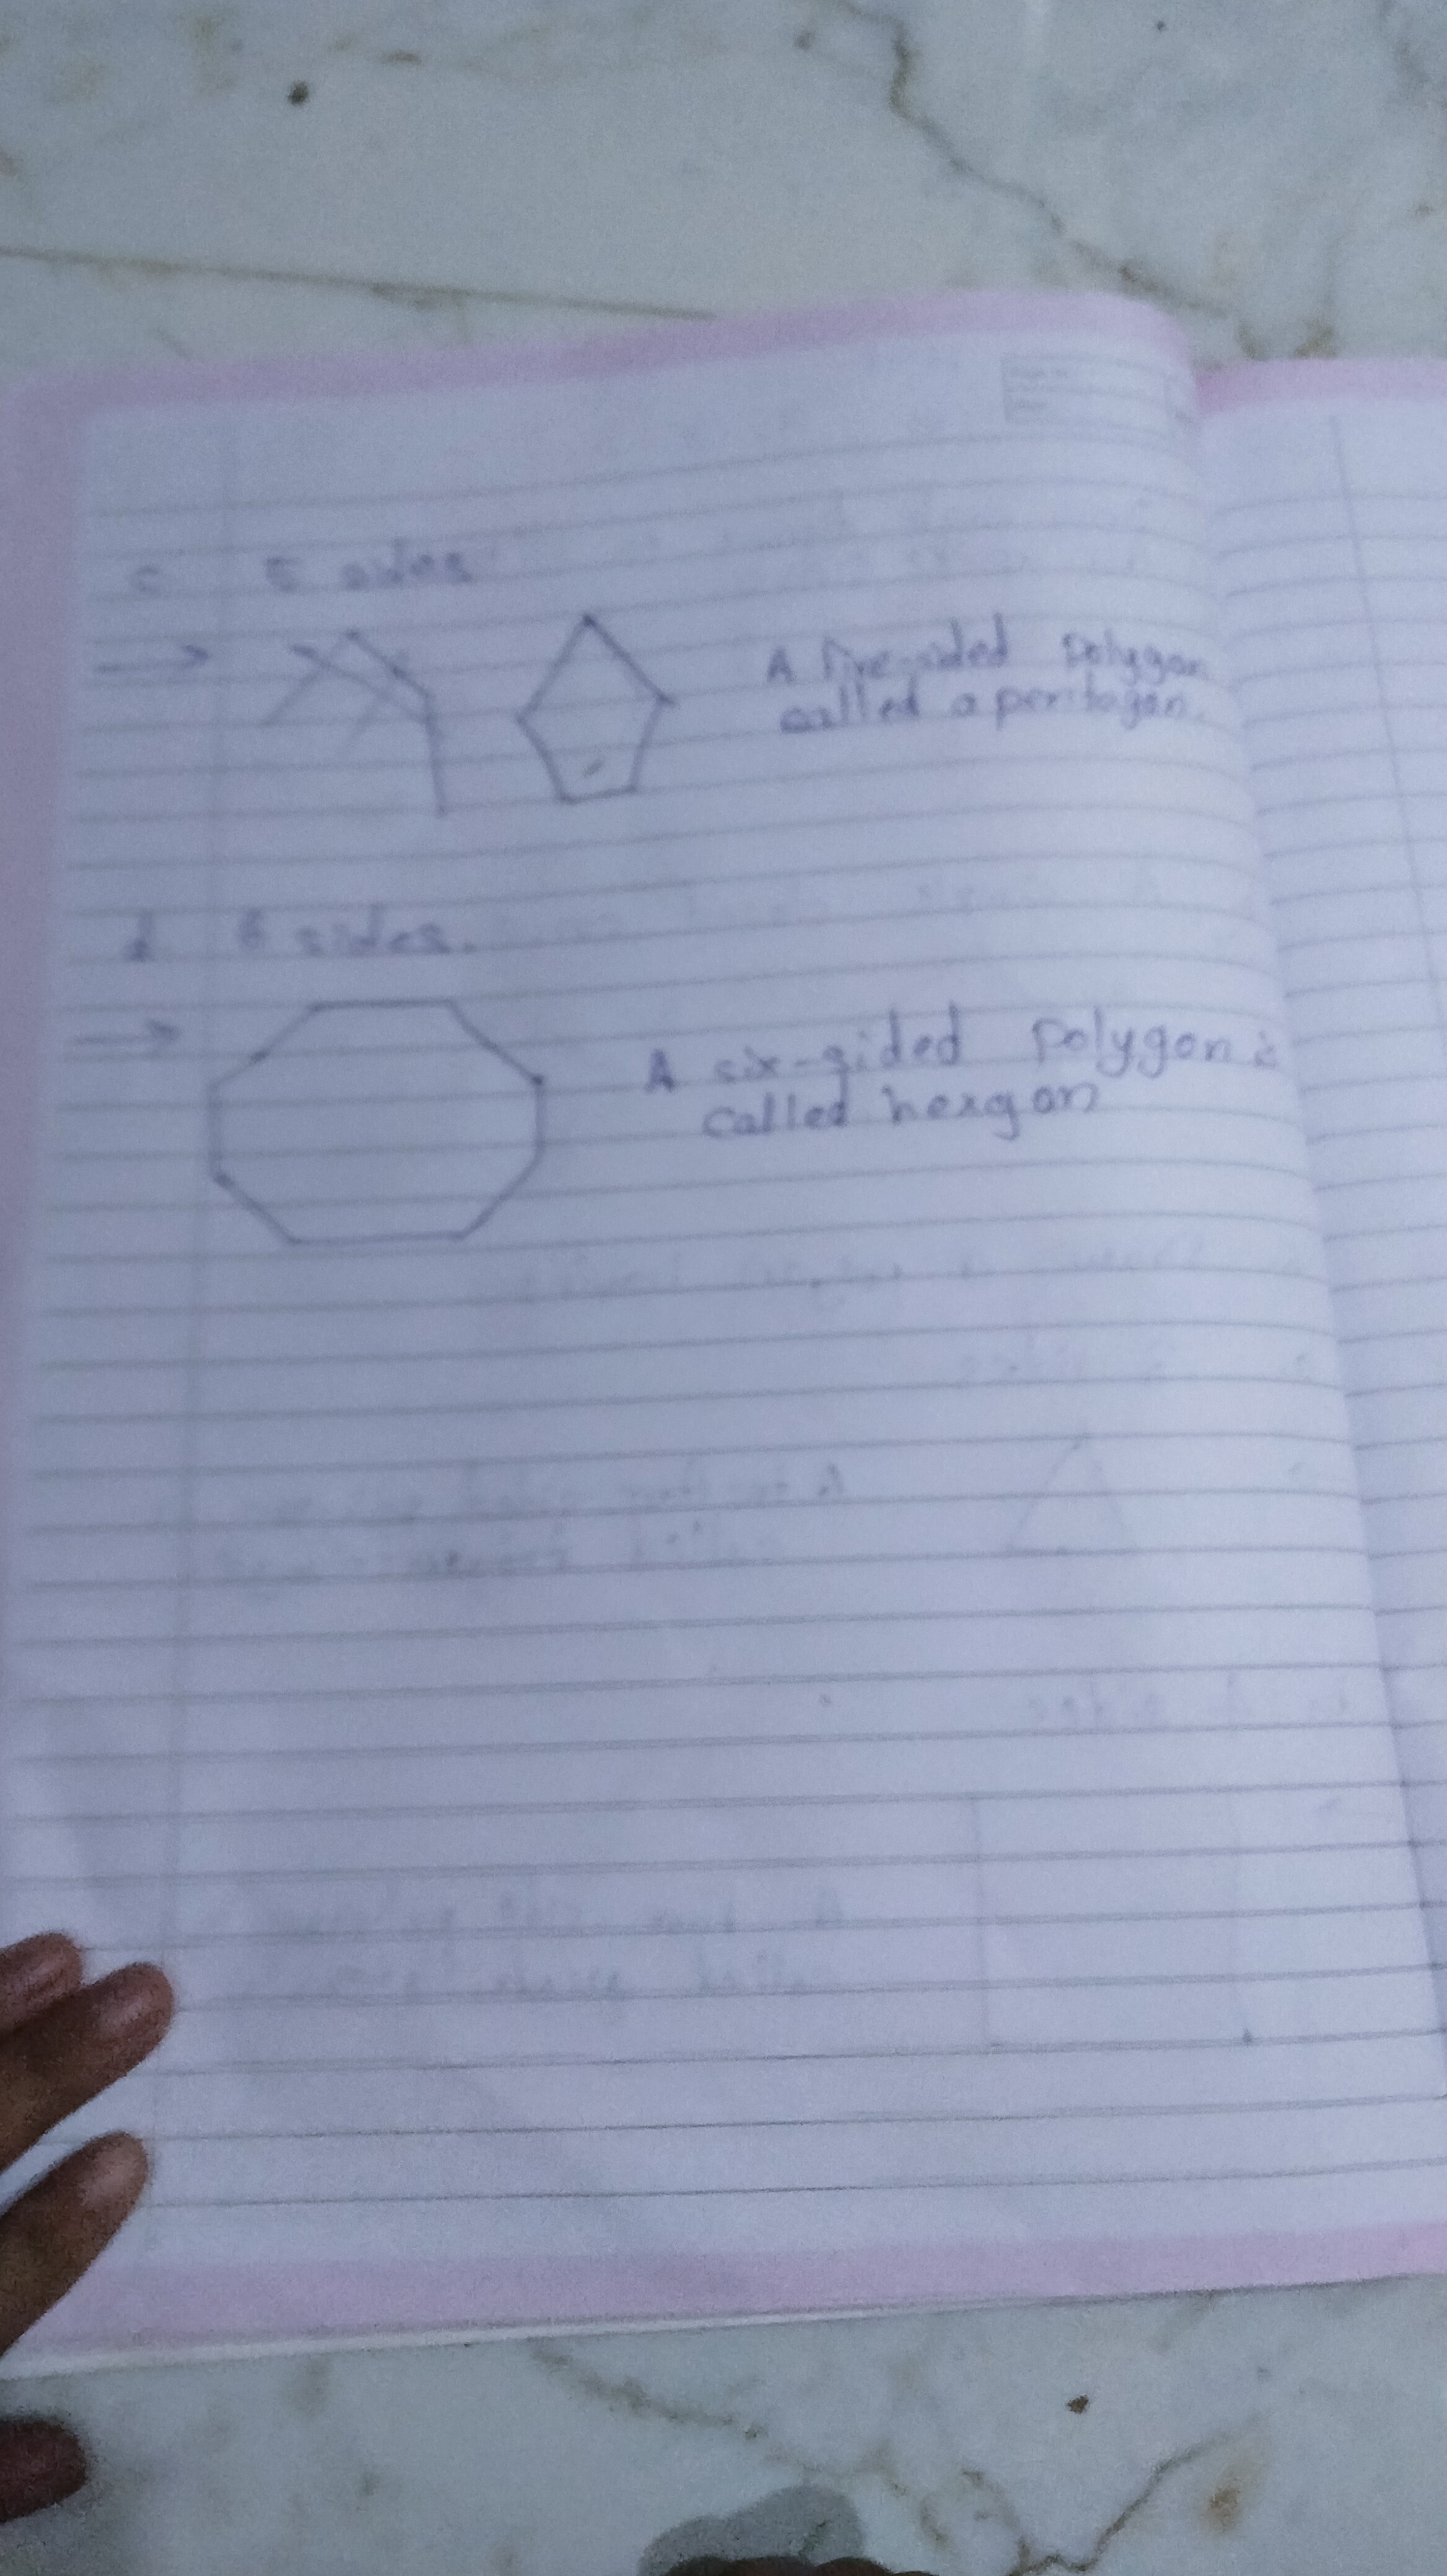 c 5 sides
A five-sided polygon
called a pentagon.
d 6 sides.
A six-sided polygon is
called hexgon